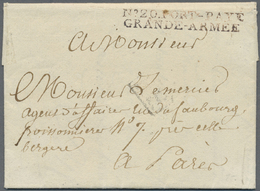 N°20.PORT-PAYÉ
GRANDE-ARMÉE
A Monsieur
Monsieur Lemercier
agent d'affaire rue du faubourg
poissonniere N° 7 per celle
bergere
a Paris